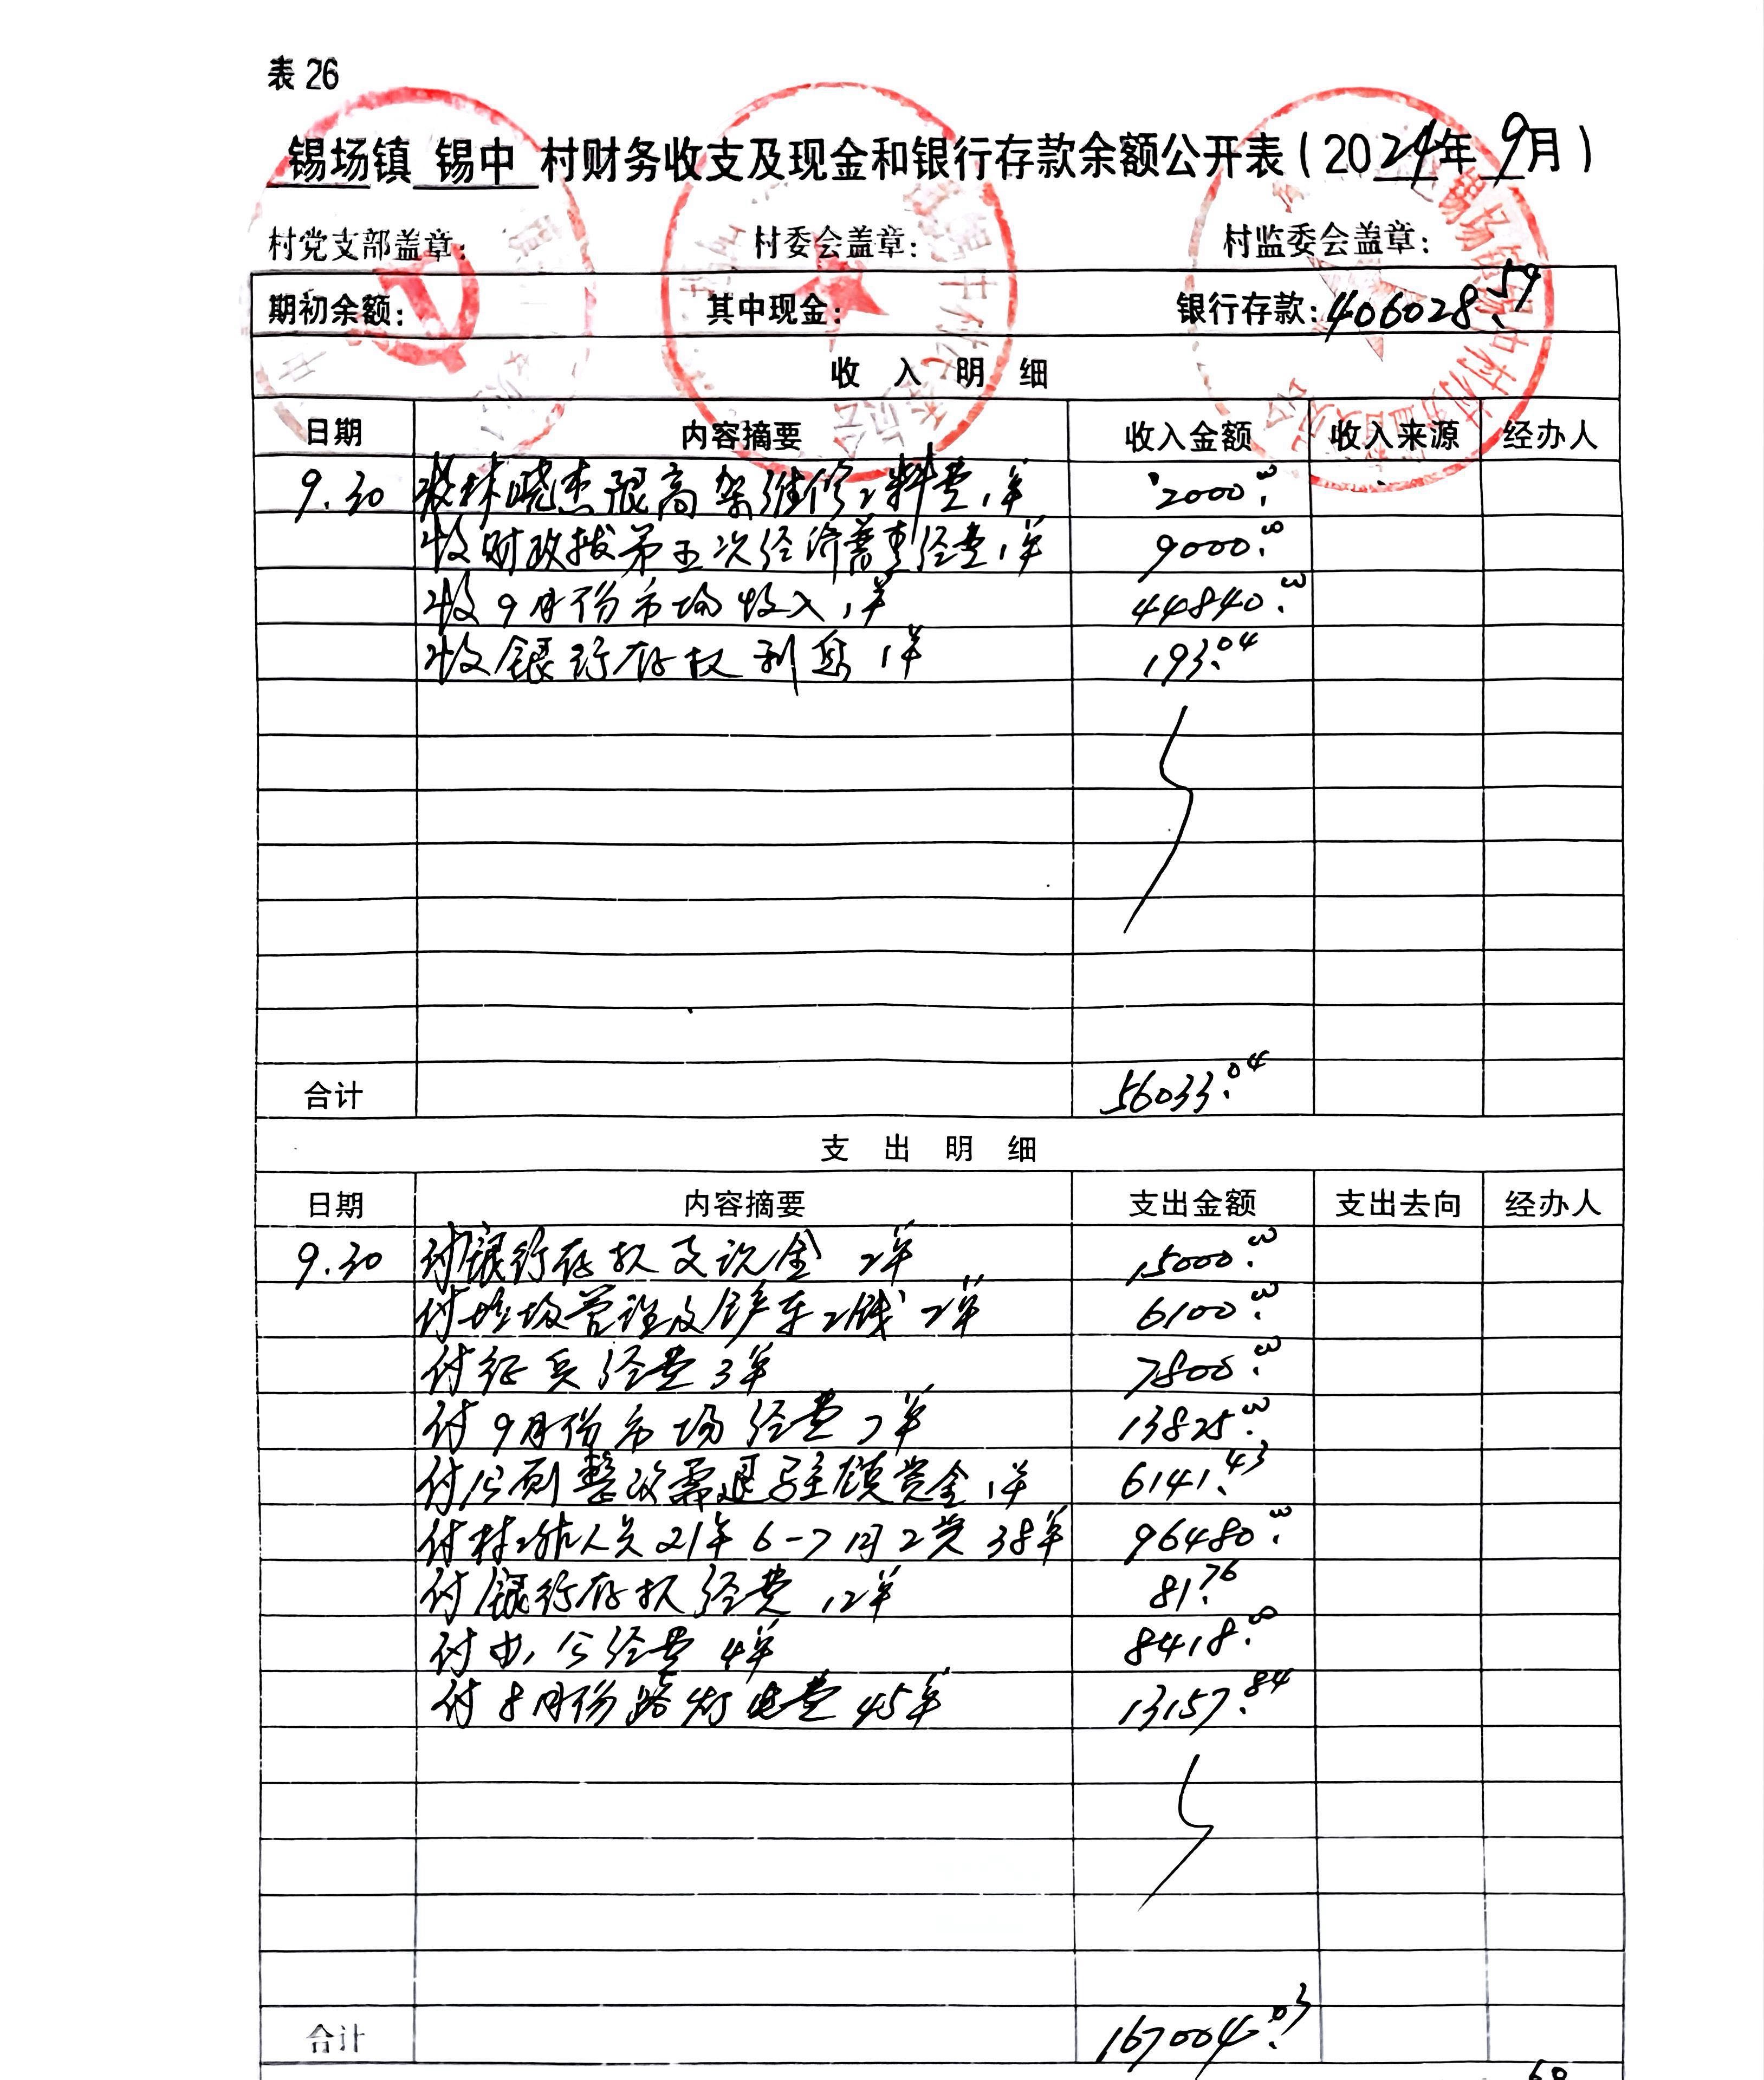 表 26
锡场镇 锡中 村财务收支及现金和银行存款余额公开表(2024年 9月)
村党支部盖章: 村委会盖章: 村监委会盖章:
期初余额: 其中现金: 银行存款:406028.59
收 入 明 细
日期 内容摘要 收入金额 收入来源 经办人
9.30 收林晓杰限高架维修工料费1单 2000.00
收财政拨第五次经济普查经费1单 9000.00
收9月份市场收入1单 44840.00
收银行存款利息1单 193.04
合计 56033.04
支 出 明 细
日期 内容摘要 支出金额 支出去向 经办人
9.30 付银行存款支现金 2单 15000.00
付垃圾管理及铲车工钱 2单 6100.00
付征兵经费3单 7800.00
付9月份市场经费7单 13825.00
付公厕整改需退 赏金1单 6141.43
付村工作人员21年6-7月工资38单 96480.00
付银行存款经费12单 81.76
付办公经费4单 8418.00
付8月份路灯电费45单 13157.84
合计 167004.03